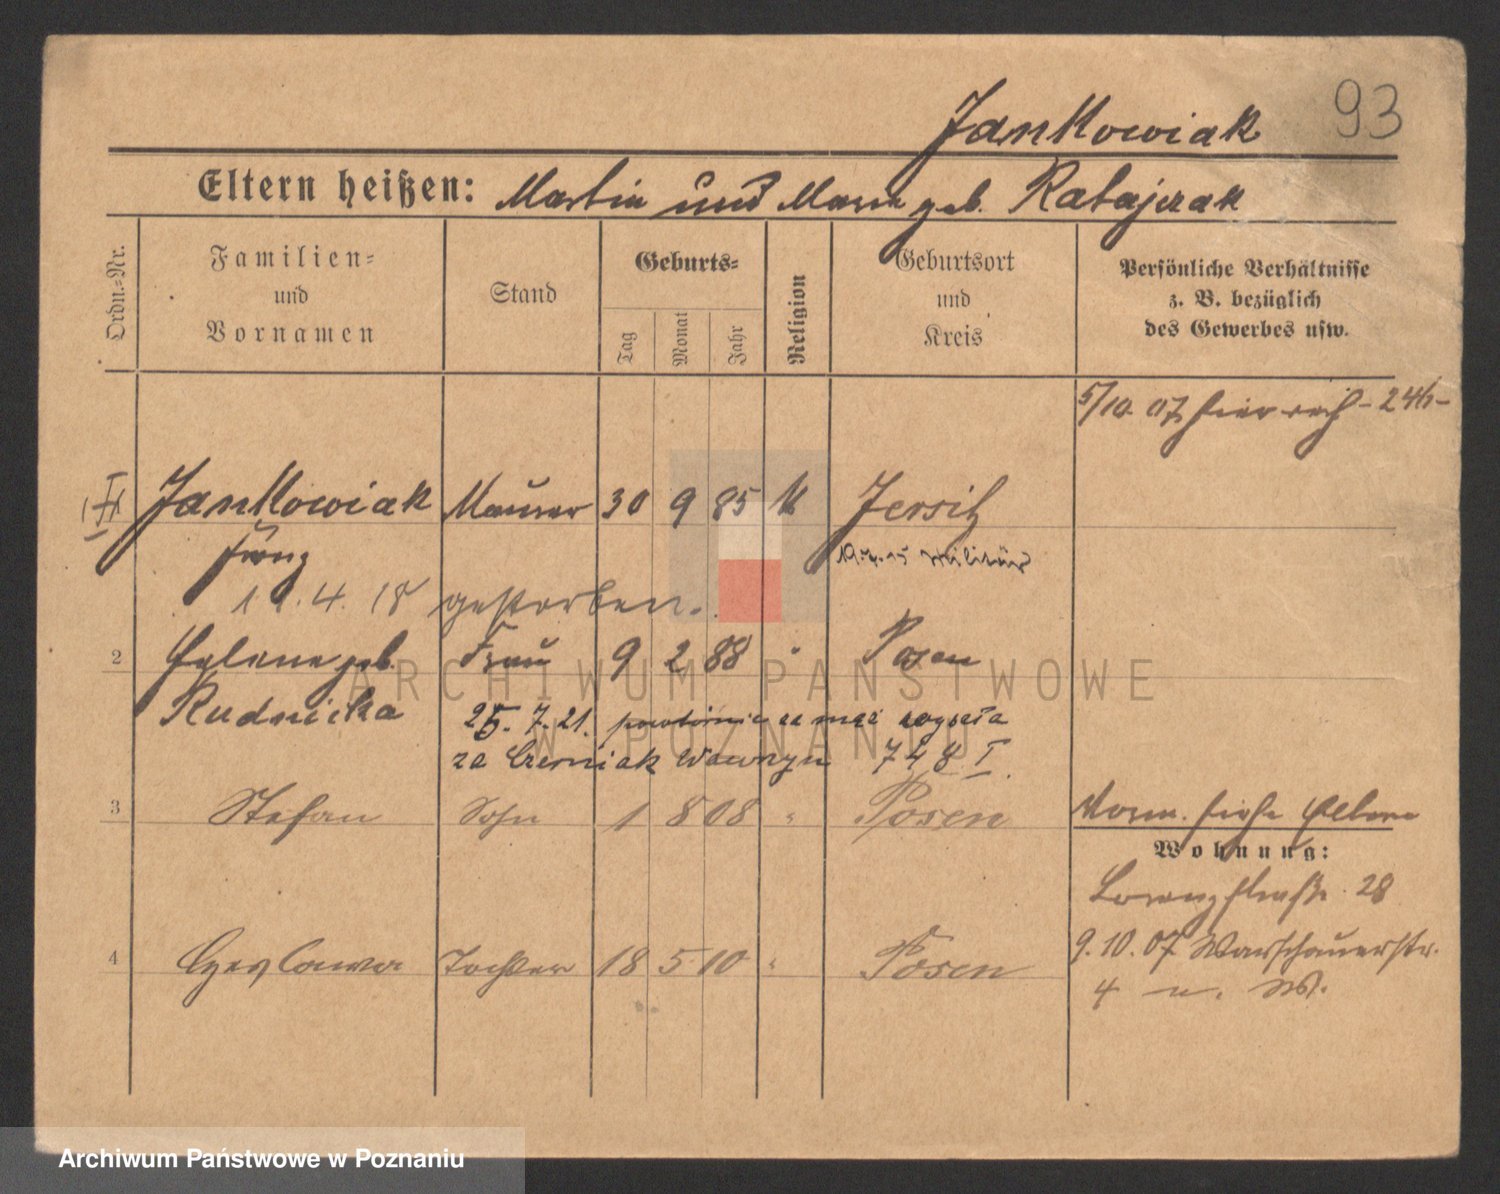 Jankowiak 93
Eltern heißen: Martin und Maria geb. Ratajczak
Ordn.=Nr.
Familien=
und
Vornamen
Stand
Geburts=
Tag
Monat
Jahr
Religion
Geburtsort
und
Kreis
Persönliche Verhältnisse
z. B. bezüglich
des Gewerbes usw.
5/10. 07.
Jankowiak Maurer 30 9 85 K Jersitz
Franz 19.7.15 Militär
11.4.18 gestorben.
2 Helene geb. Frau 9 2 88 " Posen
Rudnicka
25.7.21. powtórnie za mąż wyszła
za Czerniak Wawrzyn 748 I.
3 Stefan Sohn 1 8 08 " Posen
Vorm. siehe Eltern
Wohnung:
Lorenzstraße 28
4 Czeslawa Tochter 18 5 10 " Posen
9.10.07 Warschauerstr.
4
ARCHIWUM PAŃSTWOWE
W POZNANIU
Archiwum Państwowe w Poznaniu